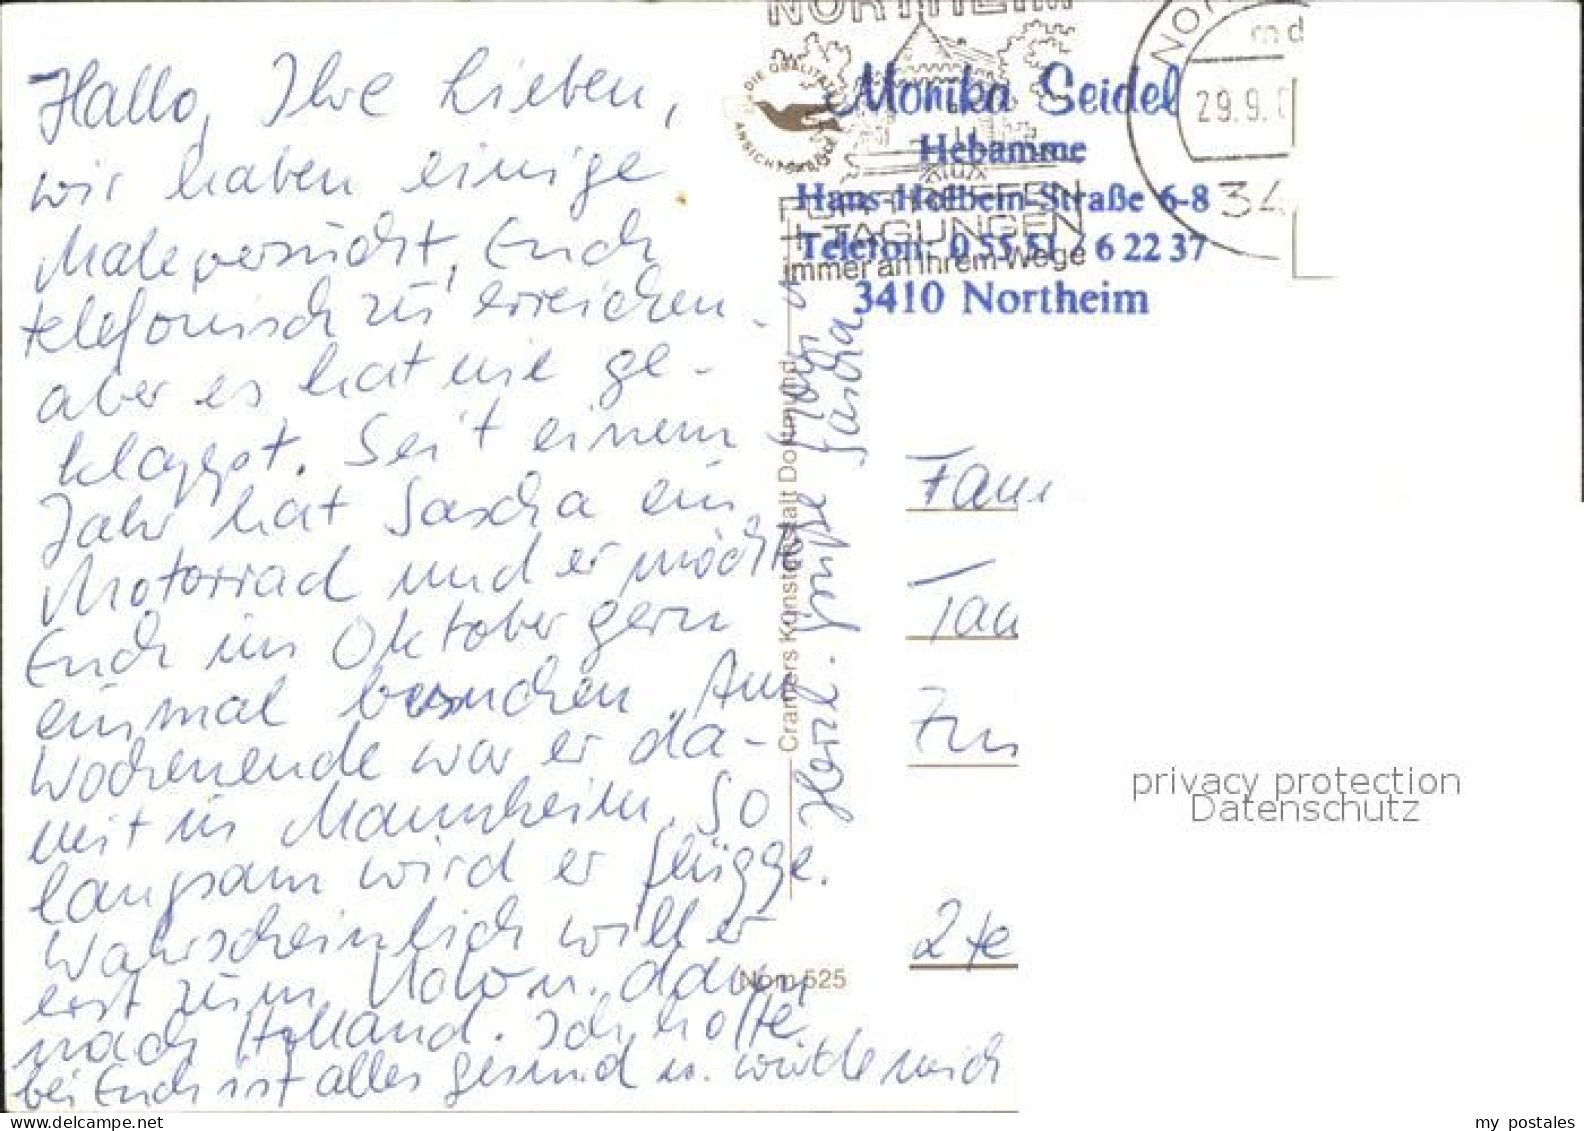 Hallo, Ihr Lieben,
wir haben einige
Male versucht, Euch
telefonisch zu erreichen.
aber es hat nie ge-
klappt. Seit einem
Jahr hat Sascha ein
Motorrad und er möchte
Euch im Oktober gern
einmal besuchen. Am
Wochenende war er da-
mit in Mannheim. So
langsam wird er flügge.
Wahrscheinlich will er
erst zum u. dann
nach Holland. Ich hoffe
bei Euch ist alles gesund u. würde mich
Herzl. Grüße
Sascha
Cramers Kunstanstalt Dortmund
Nom 525
NORTHEIM
DIE QUALITÄTS
ANSICHTSKARTE
FÜR TREFFEN
+TAGUNGEN
immer an Ihrem Wege
29.9.
34
Monika Seidel
Hebamme
Hans-Holbein-Straße 6-8
Telefon: 0 55 51 / 6 22 37
3410 Northeim
Fam
Tau
2te
privacy protection
Datenschutz
www.delcampe.net
my_postales